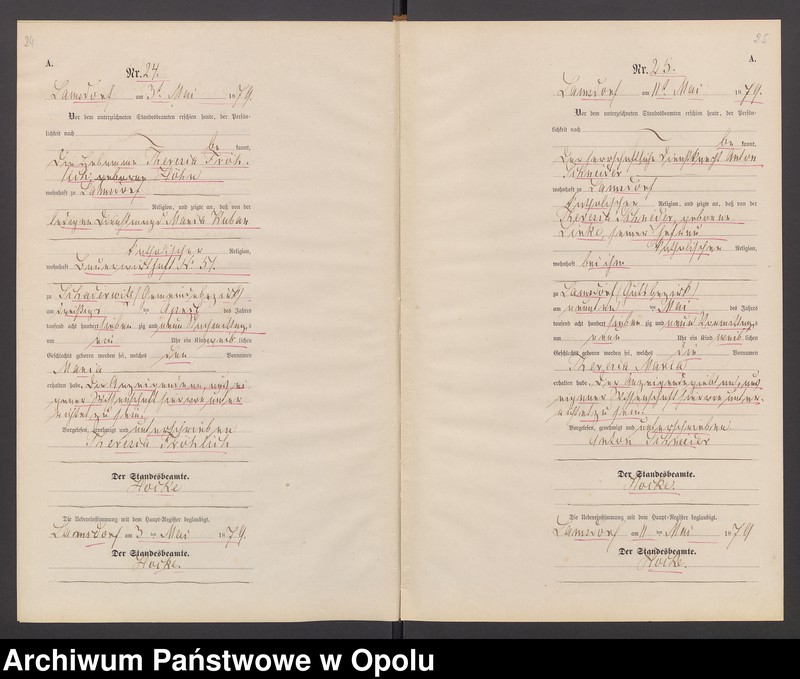 24
A.
Nr. 24.
Lamsdorf am 3t Mai 1879.
Vor dem unterzeichneten Standesbeamten erschien heute, der Persön-
lichkeit nach
be kannt,
die Hebamme Theresia Fröh-
lich, geborene Höhn
wohnhaft zu Lamsdorf
Religion, und zeigte an, daß von der
ledigen Dienstmagd Maria
katholischer Religion,
wohnhaft Bauerwirthschaft No 57.
zu (Gemeindebezirk)
am dreißigs ten April des Jahres
tausend acht hundert sieben zig und neun Nachmittags
um Uhr ein Kind weib lichen
Geschlechts geboren worden sei, welches den Vornamen
Maria
erhalten habe. Die Anzeigende
eigener Wissenschaft hiervon unter-
richtet zu sein.
Vorgelesen, genehmigt und unterschrieben
Theresia Fröhlich
Der Standesbeamte.
Hocke
Die Uebereinstimmung mit dem Haupt-Register beglaubigt.
Lamsdorf am 3 ten Mai 1879.
Der Standesbeamte.
Hocke.
25
A.
Nr. 25.
Lamsdorf am 11t Mai 1879.
Vor dem unterzeichneten Standesbeamten erschien heute, der Persön-
lichkeit nach
be kannt,
der herrschaftliche Dienstknecht Anton
Schneider
wohnhaft zu Lamsdorf
katholischer Religion, und zeigte an, daß von der
Theresia Schneider, geborene
seiner Ehefrau
katholischer Religion,
wohnhaft bei ihm
zu Lamsdorf (Gutsbezirk)
am neunten ten Mai des Jahres
tausend acht hundert sieben zig und neun Vormittags
um neun Uhr ein Kind weib lichen
Geschlechts geboren worden sei, welches die Vornamen
Theresia Maria
erhalten habe. Der Anzeigende
eigener Wissenschaft hiervon unter-
richtet zu sein.
Vorgelesen, genehmigt und unterschrieben
Anton Schneider
Der Standesbeamte.
Hocke.
Die Uebereinstimmung mit dem Haupt-Register beglaubigt.
Lamsdorf am 11 ten Mai 1879
Der Standesbeamte.
Hocke.
Archiwum Państwowe w Opolu